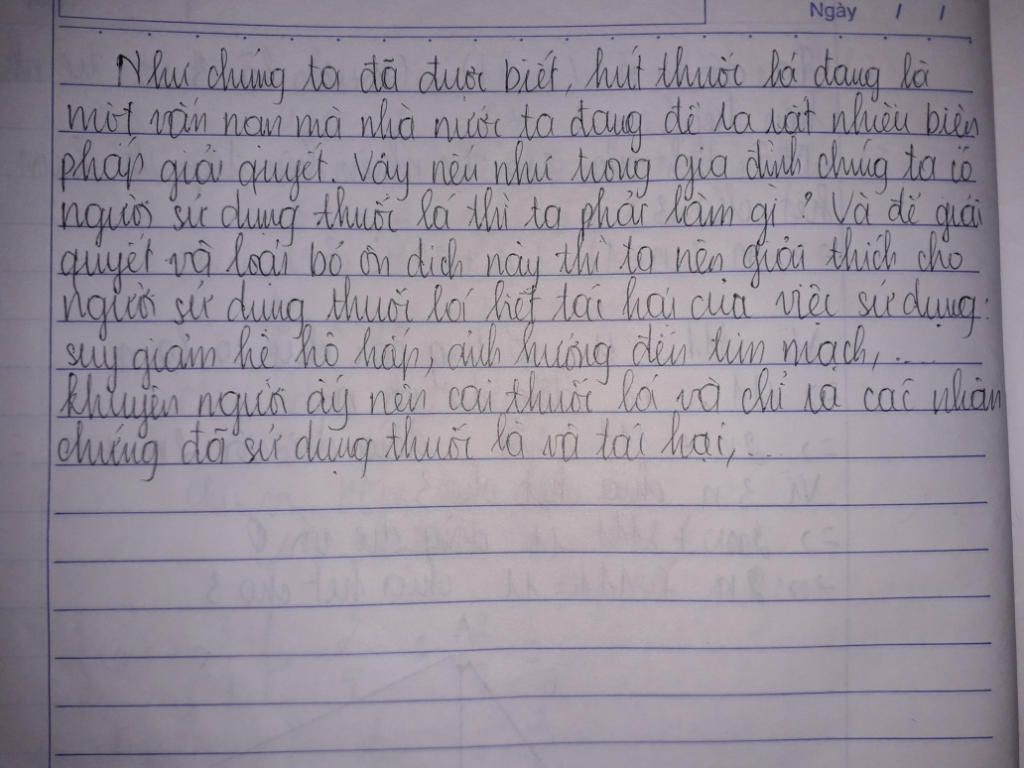 Ngày / /
Như chúng ta đã được biết, hút thuốc lá đang là
một vấn nạn mà nhà nước ta đang đề ra rất nhiều biện
pháp giải quyết. Vậy nếu như trong gia đình chúng ta có
người sử dụng thuốc lá thì ta phải làm gì? Và để giải
quyết và loại bỏ ôn dịch này thì ta nên giải thích cho
người sử dụng thuốc lá biết tác hại của việc sử dụng:
suy giảm hệ hô hấp, ảnh hưởng đến tim mạch,....
khuyên người ấy nên cai thuốc lá và chỉ ra các nhân
chứng đã sử dụng thuốc lá và tác hại,....